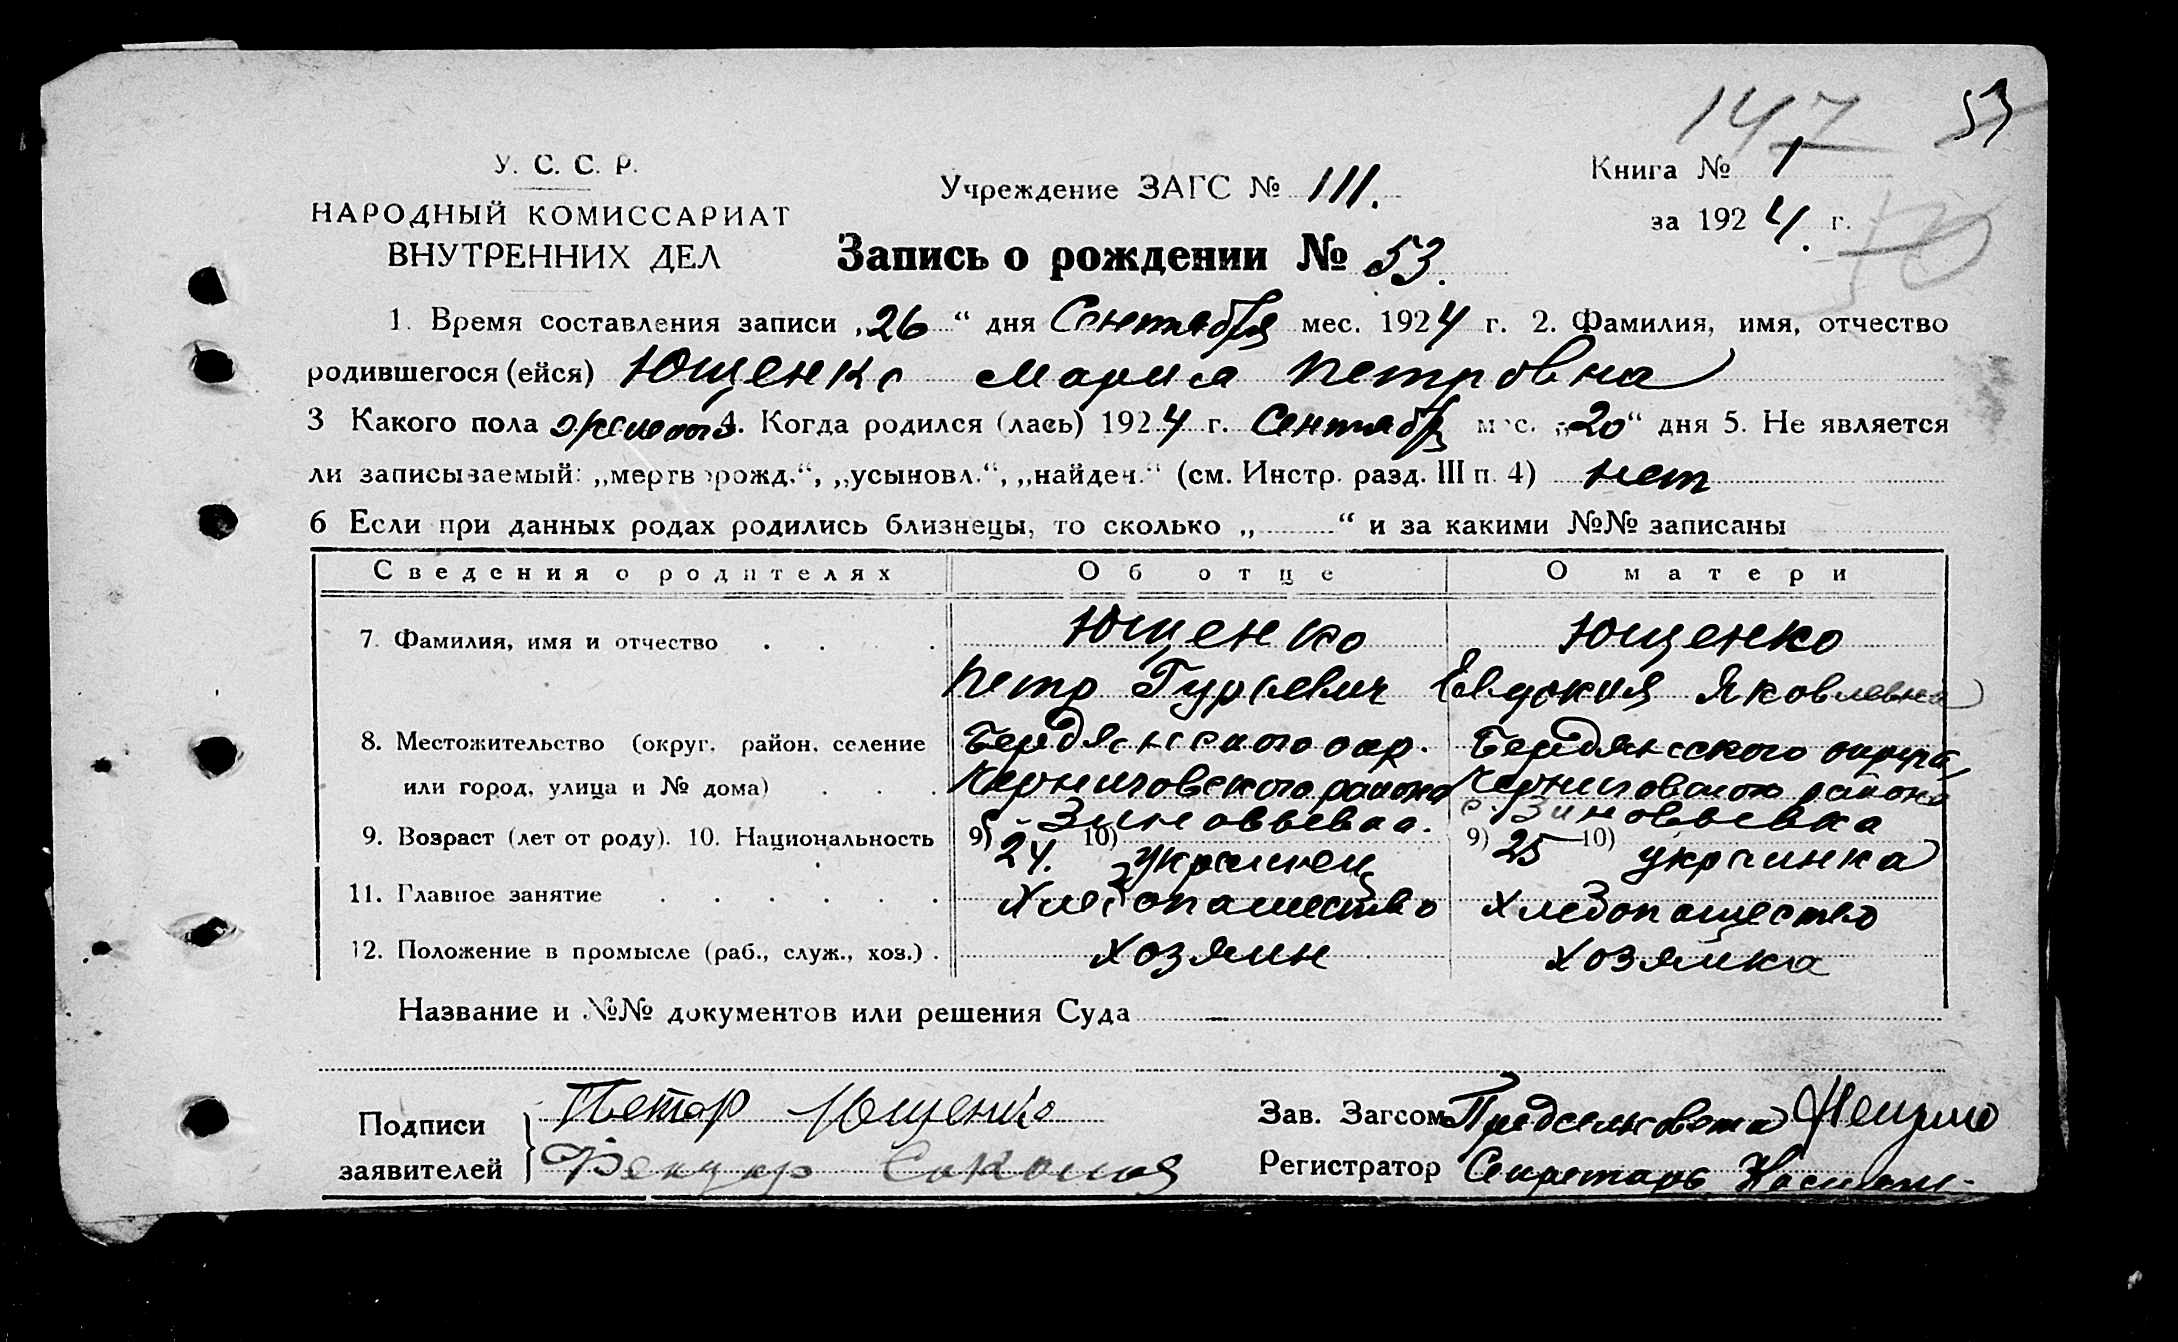 147 53
У. С. С. Р.
НАРОДНЫЙ КОМИССАРИАТ
ВНУТРЕННИХ ДЕЛ
Учреждение ЗАГС № 111.
Книга № 1
за 1924 г.
Запись о рождении № 53.
1. Время составления записи „26“ дня Сентября мес. 1924 г. 2. Фамилия, имя, отчество
родившегося (ейся) Ющенко Мария Петровна
3 Какого пола женского 4. Когда родился (лась) 1924 г. Сентябр мес. „20“ дня 5. Не является
ли записываемый: „мертворожд.“, „усыновл.“, „найден.“ (см. Инстр. разд. III п. 4) нет
6 Если при данных родах родились близнецы, то сколько „ “ и за какими №№ записаны
Сведения о родителях Об отце О матери
7. Фамилия, имя и отчество Ющенко Ющенко
Петр Гурьевич Евдокия Яковлевна
8. Местожительство (округ, район, селение Бердянского окр. Бердянсского округа,
или город, улица и № дома) Черниговского района Черниговского района
с. Зиновьевка. с. Зиновьевка
9. Возраст (лет от роду). 10. Национальность 9) 24. 10) украинец 9) 25 10) украинка
11. Главное занятие Хлебопашество Хлебопашество
12. Положение в промысле (раб., служ., хоз.) хозяин хозяйка
Название и №№ документов или решения Суда —
Подписи
заявителей
Петр Ющенко
Зав. Загсом Предсельсовета
Регистратор Секретарь